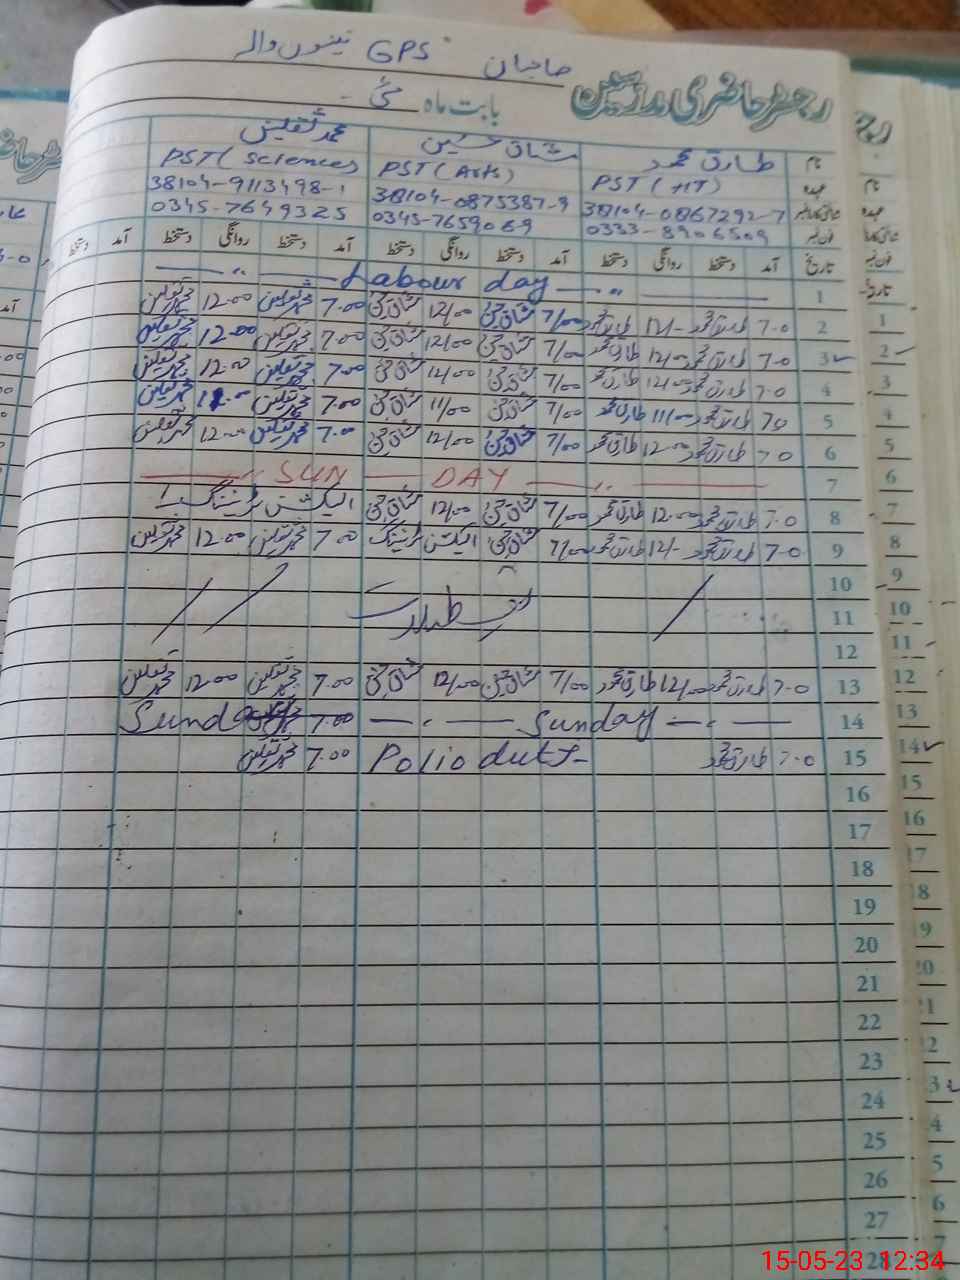 رجسٹر حاضری مدرسین صاحبان GPS
بابت ماہ مئی
نام طارق محمود مشتاق حسین محمد ثقلین
عہدہ PST (HT) PST (Arts) PST (Science)
38104-0867292-7 38104-0875387-9 38104-9113498-1
فون نمبر 0333-8906509 0345-7659069 0345-7649325
تاریخ آمد دستخط روانگی دستخط آمد دستخط روانگی دستخط آمد دستخط روانگی دستخط
1 Labour day
2 7.0 طارق محمود 12/- طارق محمود 7/00 مشتاق حسین 12/00 مشتاق حسین 7.00 محمد ثقلین 12.00 محمد ثقلین
3 7.0 طارق محمود 12/00 طارق محمود 7/00 مشتاق حسین 12/00 مشتاق حسین 7.00 محمد ثقلین 12.00 محمد ثقلین
4 7.0 طارق محمود 12/00 طارق محمود 7/00 مشتاق حسین 12/00 مشتاق حسین 7.00 محمد ثقلین 12.00 محمد ثقلین
5 7.0 طارق محمود 11/00 طارق محمود 7/00 مشتاق حسین 11/00 مشتاق حسین 7.00 محمد ثقلین محمد ثقلین
6 7.0 طارق محمود 12.00 طارق محمود 7/00 مشتاق حسین 12/00 مشتاق حسین 7.00 محمد ثقلین 12.00 محمد ثقلین
7 SUN DAY
8 7.0 طارق محمود 12.00 طارق محمود 7/00 مشتاق حسین 12/00 مشتاق حسین الیکشن ٹریننگ
9 7.0 طارق محمود 12/- طارق محمود 7/00 مشتاق حسین الیکشن ٹریننگ 7.00 محمد ثقلین 12.00 محمد ثقلین
10
11 تعطیلات
12
13 7.0 طارق محمود 12/00 طارق محمود 7/00 مشتاق حسین 12/00 مشتاق حسین 7.00 محمد ثقلین 12.00 محمد ثقلین
14 Sunday 7.00 Sunday
15 7.0 طارق محمود Polio duty 7.00 محمد ثقلین
16
17
18
19
20
21
22
23
24
25
26
27
28
15-05-23 12:34